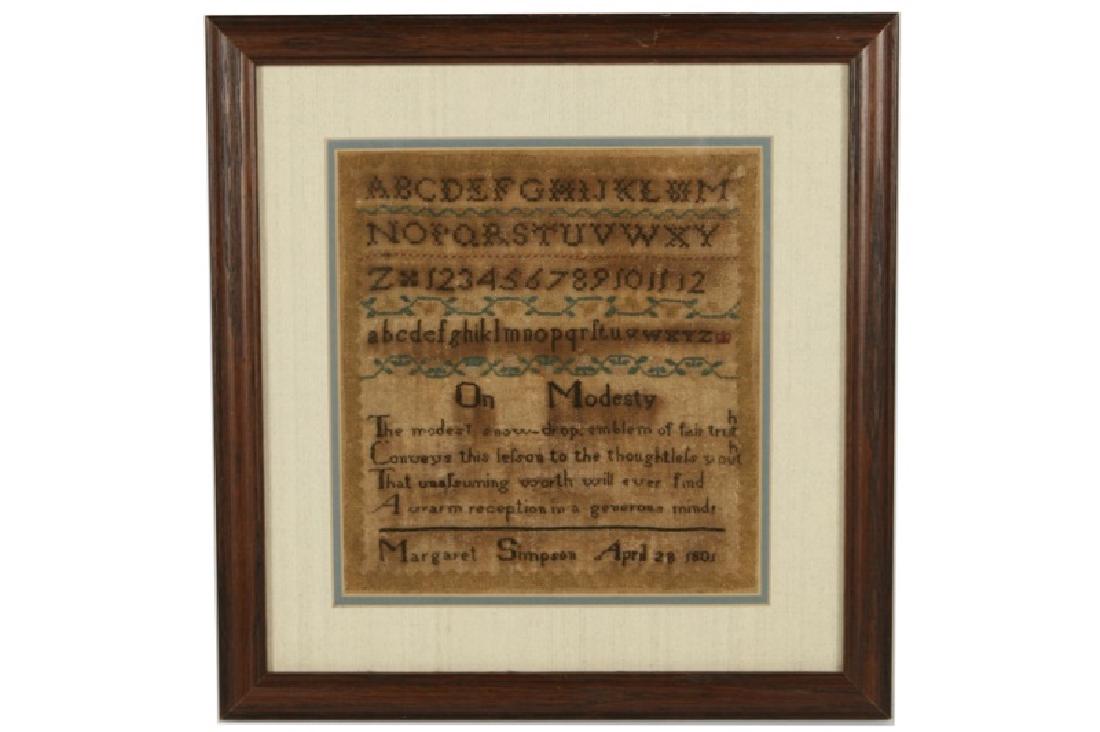 ABCDEFGHIJKLM
NOPQRSTUVWXY
Z 1 2 3 4 5 6 7 8 9 10 11 12
abcdefghiklmnopqrſtuvwxyz
On Modesty
The modest snow-drop, emblem of fair truth
Conveys this leſson to the thoughtleſs youth
That unaſsuming worth will ever find
A warm reception in a generous mind
Margaret Simpson April 28 1801